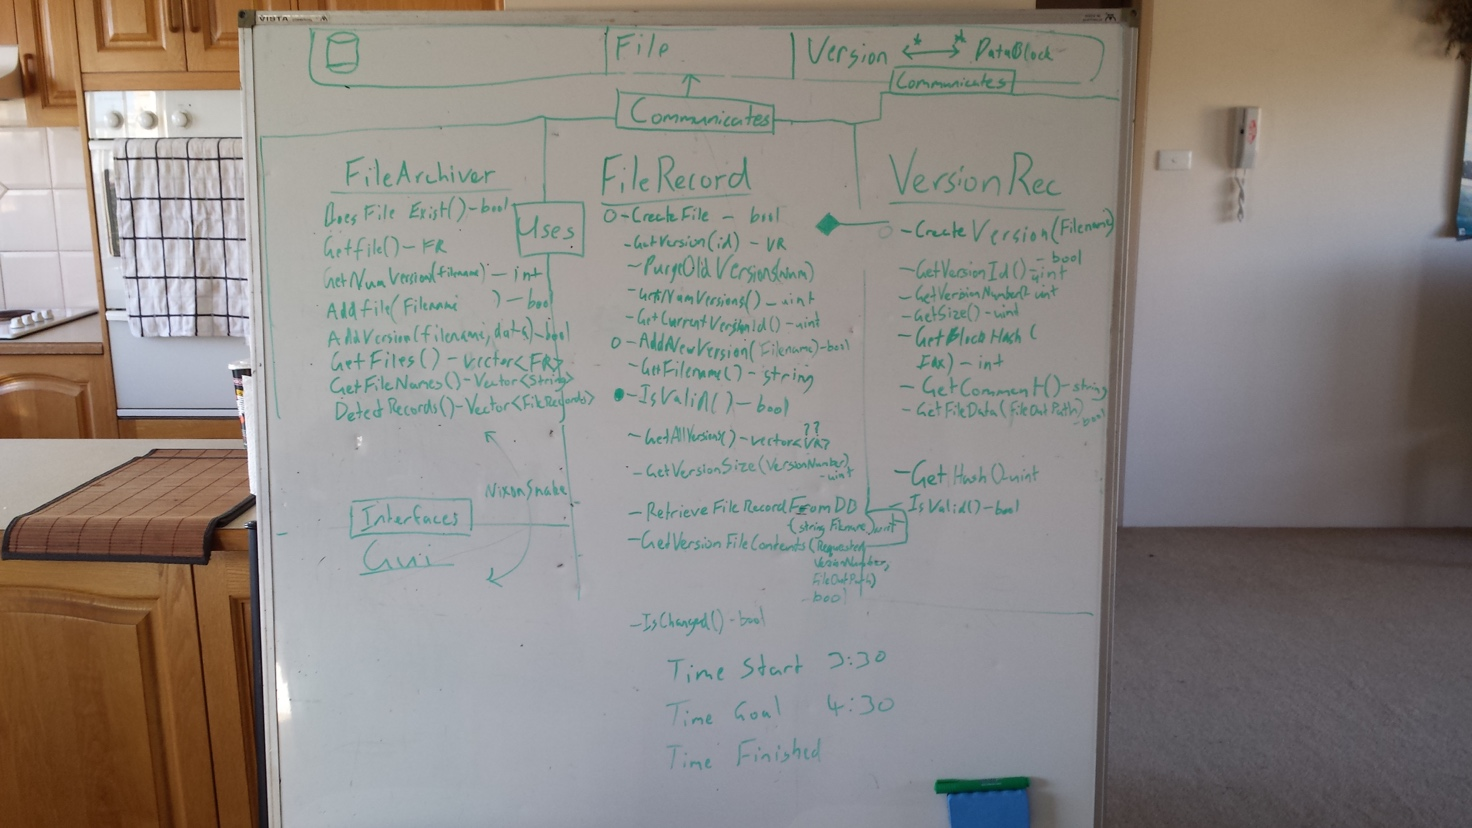 File
Version
DataBlock
Communicates
Communicates
FileArchiver
DoesFile Exist() - bool
Getfile() - FR
GetNumVersion(filename) - int
Addfile(Filename ) - bool
AddVersion(filename, data) - bool
GetFiles() - vector<FR>
GetFileNames() - Vector<String>
DetectRecords() - Vector<FileRecords>
Uses
NixonSnake
Interfaces
Gui
FileRecord
O - CreateFile - bool
- GetVersion(id) - VR
- PurgeOldVersions(num)
- GetNumVersions() - uint
- GetCurrentVersionId() - uint
O - AddNewVersion(Filename) - bool
- GetFilename() - string
- IsValid() - bool
??
- GetAllVersions() - vector<VR>
- GetVersionSize(VersionNumber)
- uint
- RetrieveFileRecordFromDB
(string Filename) uint
- GetVersionFileContents (Requested
VersionNumber,
FileOutPath)
bool
- IsChanged() - bool
VersionRec
O - CreateVersion(Filename)
- bool
- GetVersionId() - uint
- GetVersionNumber() - uint
- GetSize() - uint
- GetBlockHash(
) - int
- GetComment() - string
- GetFileData(FileOutPath)
- bool
- GetHash() - uint
IsValid() - bool
Time Start 3:30
Time Goal 4:30
Time Finished